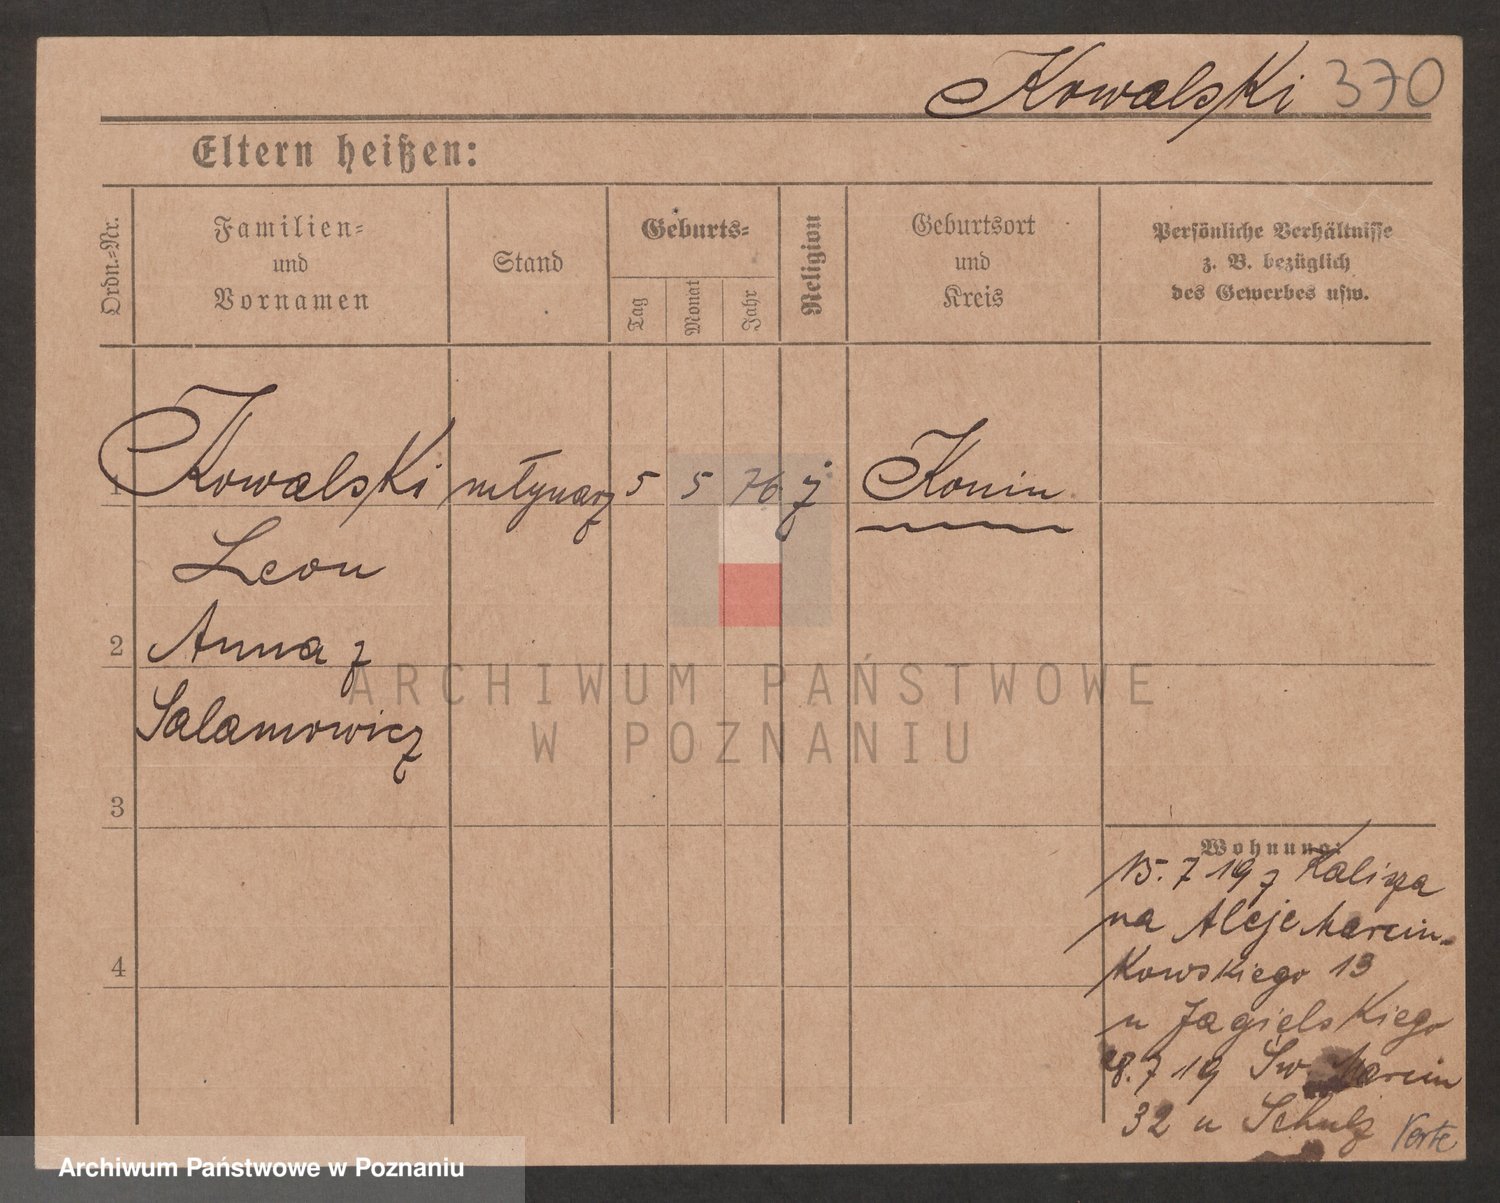 Kowalski 370
Eltern heißen:
Ordn.-Nr.
Familien-
und
Vornamen
Stand
Geburts-
Tag
Monat
Jahr
Religion
Geburtsort
und
Kreis
Persönliche Verhältnisse
z. B. bezüglich
des Gewerbes usw.
1 Kowalski młynarz 5 5 76 j Konin
Leon
2 Anna z
Salamowicz
3
4
Wohnung:
15.7 19 z Kalisza
na Aleje Marcin-
kowskiego 13
u Jagielskiego
28.7 19 Św Marcin
32 u Schulz Verte
ARCHIWUM PAŃSTWOWE
W POZNANIU
Archiwum Państwowe w Poznaniu